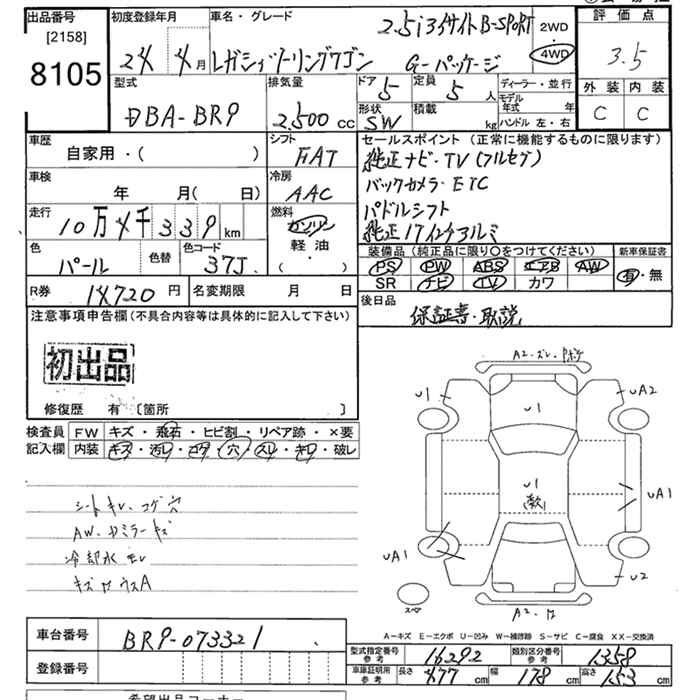 出品番号 初度登録年月 車名・グレード 2.5i アイサイト B-SPORT 2WD 評価点
[2158] 24 4月 レガシィツーリングワゴン G-パッケージ 4WD 3.5
8105 型式 排気量 ドア 5 定員 5人 ディーラー・並行 外装 内装
DBA-BR9 2,500cc 形状 SW 積載 kg モデル年式 年 ハンドル 左・右 C C
車歴 シフト セールスポイント（正常に機能するものに限ります）
自家用・( ) FAT 純正ナビ・TV(フルセグ)
車検 冷房 バックカメラ・ETC
年 月( 日) AAC パドルシフト
走行 燃料 純正17インチアルミ
10万4千339km ガソリン
軽油
・( )
色 色替 色コード 装備品（純正品に限り○をつけてください） 新車保証書
パール 37J PS PW ABS エアB AW 有・無
SR ナビ TV カワ
R券 14,720円 名変期限 月 日 後日品
注意事項申告欄(不具合内容等は具体的に記入して下さい) 保証書・取説
初出品
修復歴 有 [箇所 ]
検査員 FW キズ・飛石・ヒビ割・リペア跡・×要
記入欄 内装 キズ・汚レ・コゲ・穴・スレ・キレ・破レ
シートキレ・コゲ穴
AW・ドアミラーキズ
冷却水モレ
A2・ズレ・
U1 U1 UA2
U1 UA1
UA1 U2
スペア
A2・
A－キズ E－エクボ U－凹み W－補修跡 S－サビ C－腐食 XX－交換済
車台番号 BR9-073321 型式指定番号 参考 16292 類別区分番号 参考 1358
登録番号 車庫証明用 参考 長さ 477cm 幅 178cm 高さ 153cm
希望出品コーナー